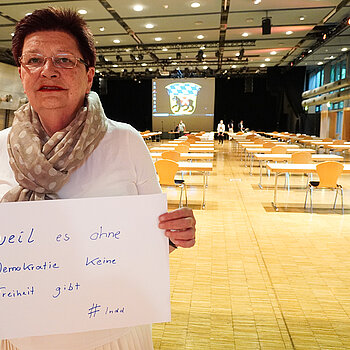 weil es ohne
Demokratie keine
Freiheit gibt
#indd